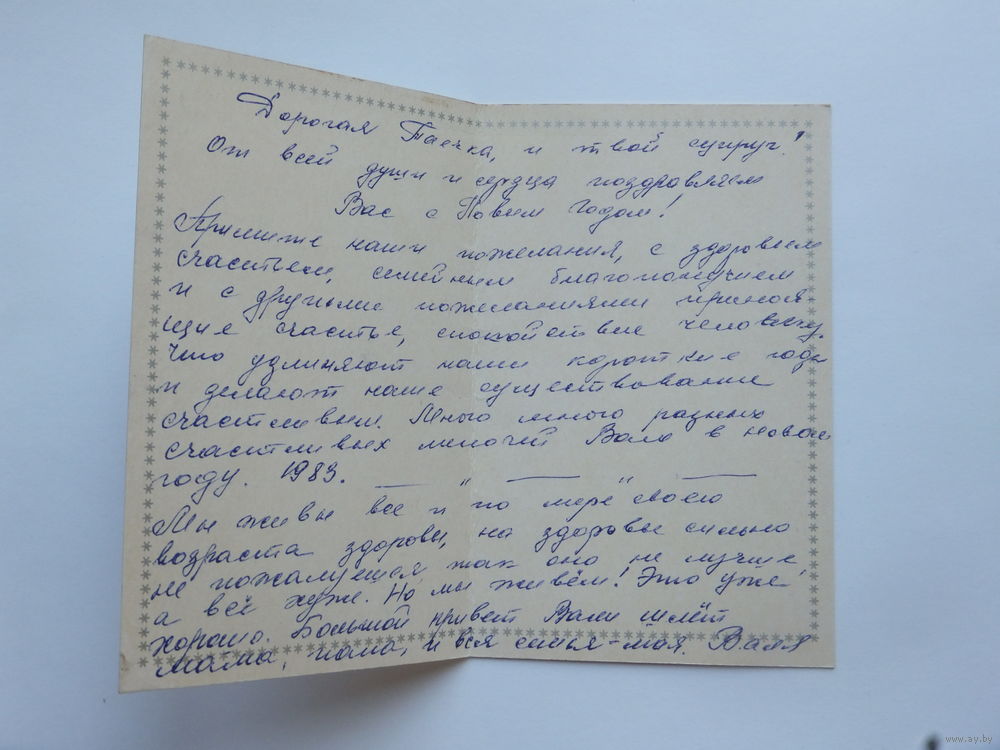 Дорогая Таечка, и твой супруг!
От всей души и сердца поздравляем
Вас с Новым годом!
Примите наши пожелания, с здоровьем
счастьем, семейным благополучием
и с другими пожеланиями принося
щие счастье, спокойствие человеку.
Что удлиняют наши короткие годы
и делают наше существование
счастливым. Много много разных
счастливых мелочей Вам в новом
году. 1983. — " — " —
Мы живы все и по мере своего
возраста здоровы, на здоровье сильно
не пожалуешся так оно не лучше,
а всё хуже. Но мы живём! Это уже
хорошо. Большой привет Вам шлёт
мама, папа, и вся семья - моя. Валя
www.ay.by